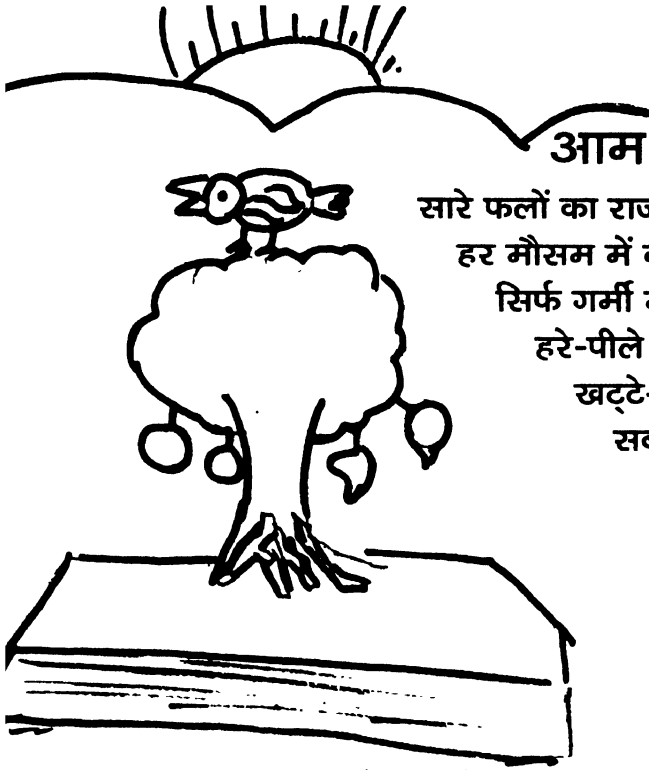 आम
सारे फलों का
हर मौसम में
सिर्फ गर्मी
हरे-पीले
खट्टे-